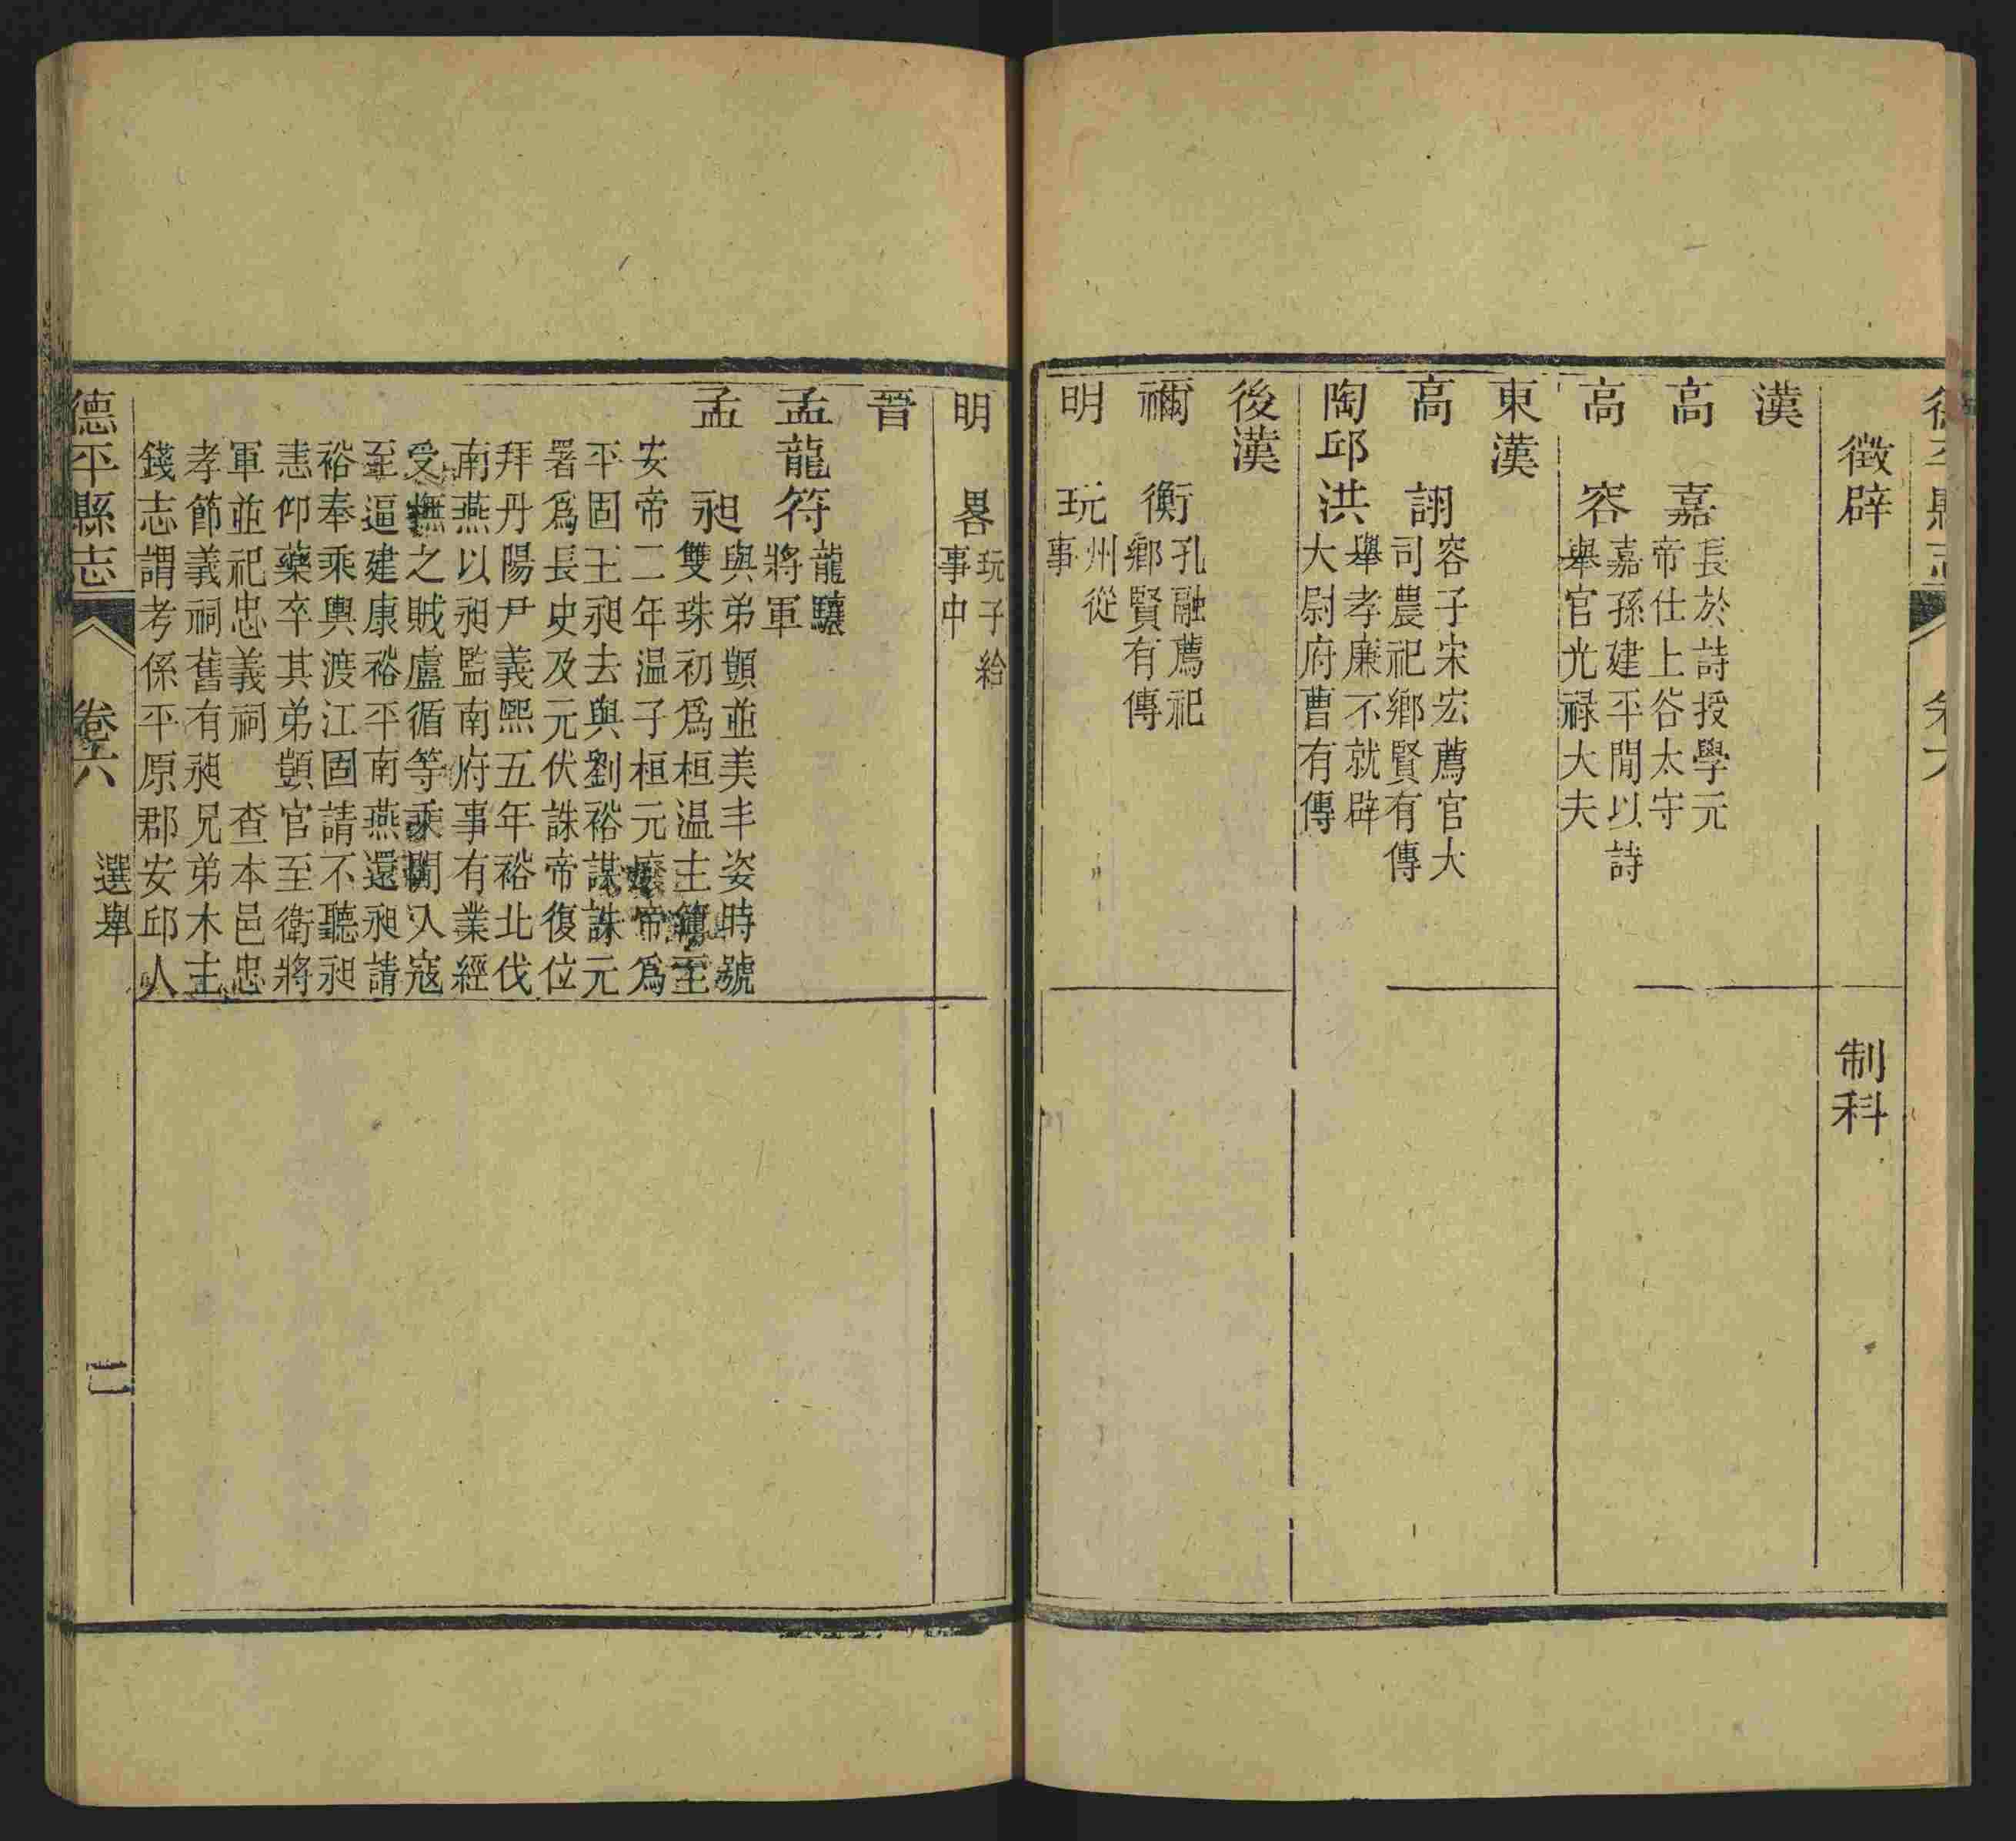 徵辟
制科
漢
高嘉 長於詩授學元
帝仕上谷太守
高容 嘉孫建平間以詩
舉官光祿大夫
東漢
高詡 容子宋宏薦官大
司農祀鄉賢有傳
陶邱洪 舉孝廉不就辟
大尉府曹有傳
後漢
禰衡 孔融薦祀
鄉賢有傳
明玩 州從
事
明畧 玩子給
事中
晉
孟龍符 龍驤
將軍
孟昶 與弟顗並美丰姿時號
雙珠初爲桓温主簿至
安帝二年温子桓元廢帝爲
平固王昶去與劉裕謀誅元
署爲長史及元伏誅帝復位
拜丹陽尹義熙五年裕北伐
南燕以昶監南府事有業經
受撫之賊盧循等乘間入寇
至逼建康裕平南燕還昶請
裕奉乘輿渡江固請不聽昶
恚仰藥卒其弟顗官至衛將
軍並祀忠義祠 查本邑忠
孝節義祠舊有昶兄弟木主
錢志謂考係平原郡安邱人
德平縣志
卷六
選舉
二